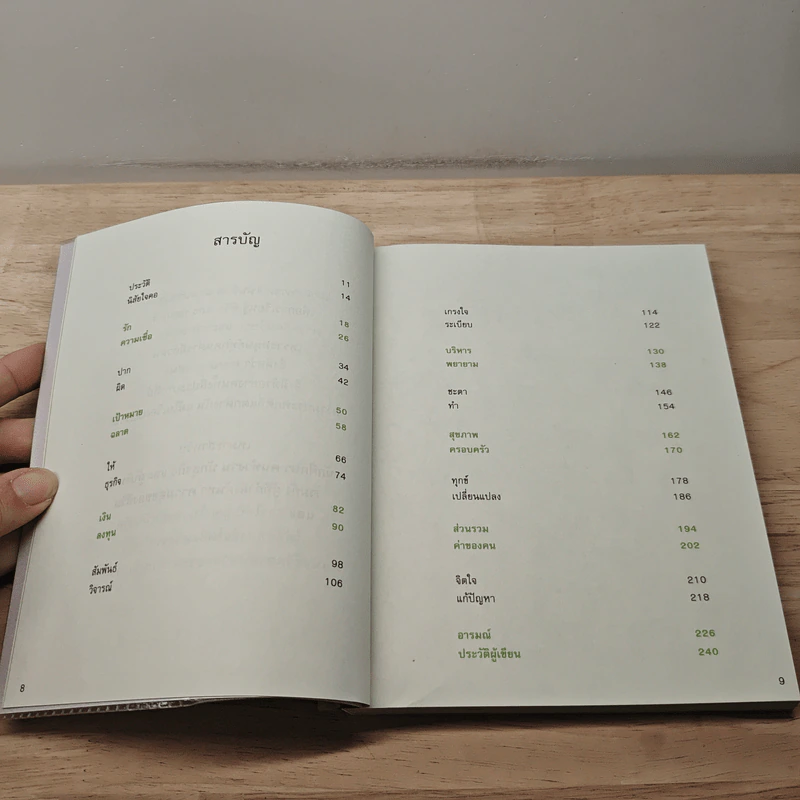 สารบัญ
ประวัติ 11
นิสัยใจคอ 14
รัก 18
ความเชื่อ 26
ปาก 34
มืด 42
เป้าหมาย 50
ฉลาด 58
ให้ 66
ธุรกิจ 74
เงิน 82
ลงทุน 90
สัมพันธ์ 98
วิจารณ์ 106
8
เกรงใจ 114
ระเบียบ 122
บริหาร 130
พยายาม 138
ชะตา 146
ทำ 154
สุขภาพ 162
ครอบครัว 170
ทุกข์ 178
เปลี่ยนแปลง 186
ส่วนรวม 194
ค่าของคน 202
จิตใจ 210
แก้ปัญหา 218
อารมณ์ 226
ประวัติผู้เขียน 240
9